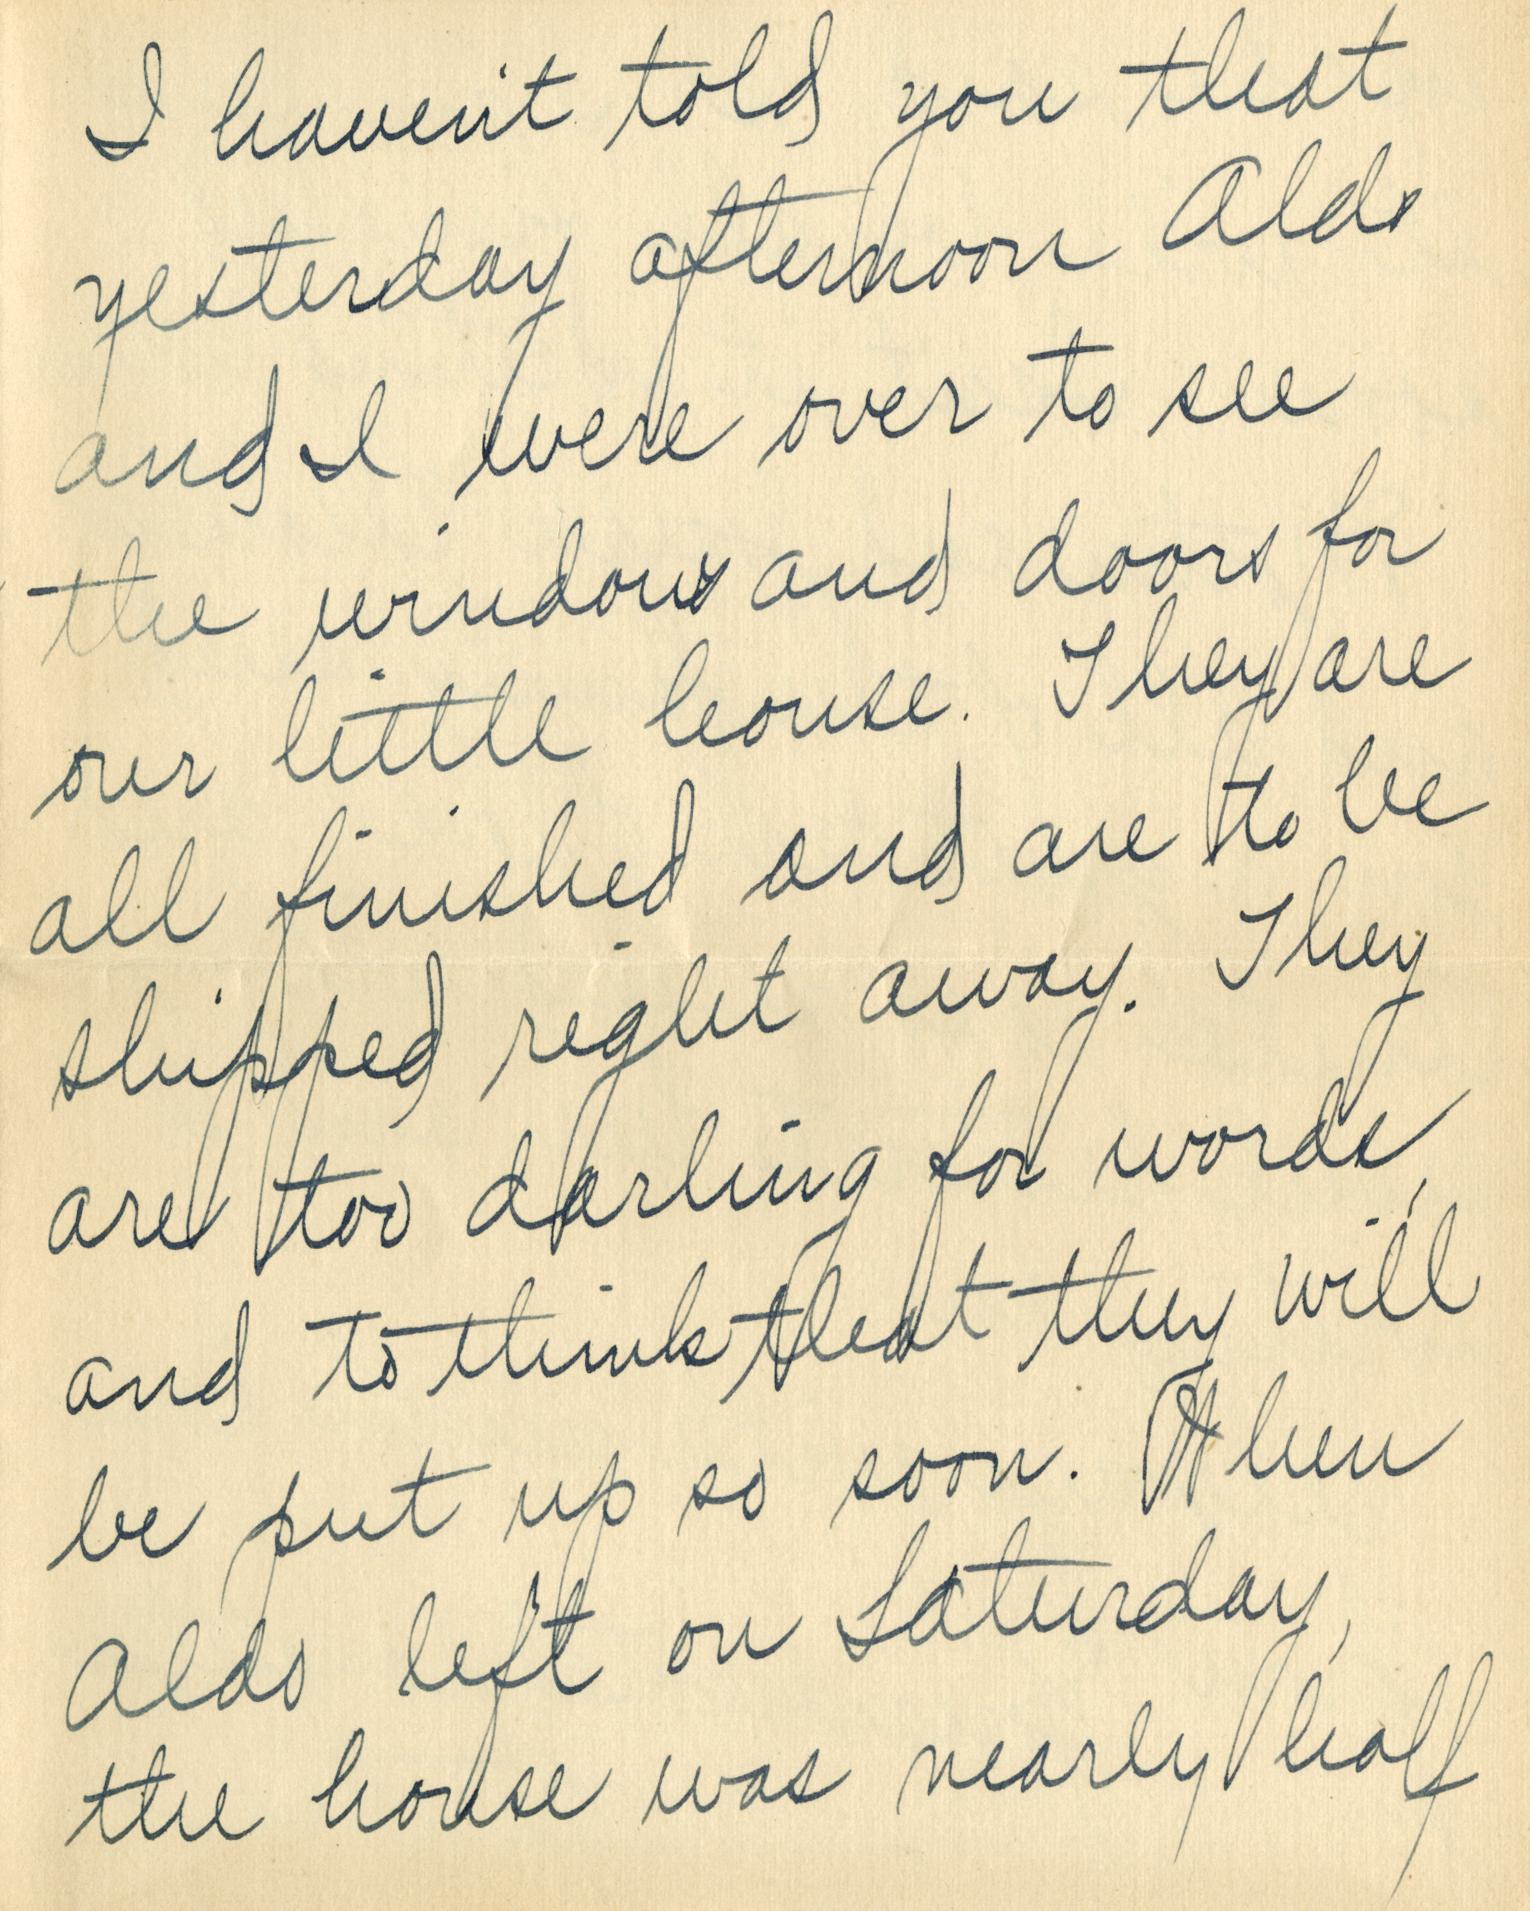 I haven't told you that
yesterday afternoon Aldo
and I were over to see
the windows and doors for
our little house. They are
all finished and are to be
shipped right away. They
are too darling for words,
and to think that they will
be put up so soon. When
Aldo left on Saturday,
the house was nearly half